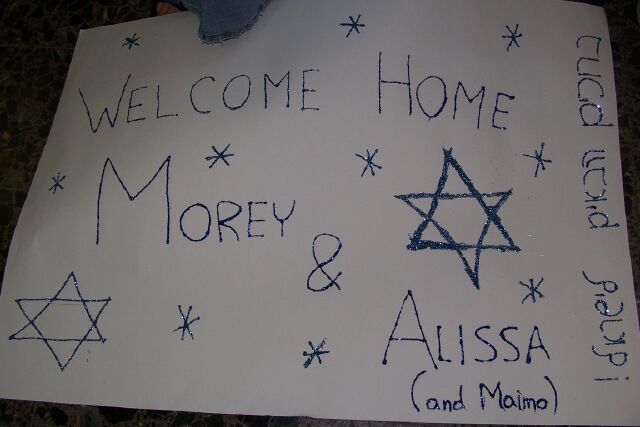 WELCOME HOME
MOREY
&
ALISSA
(and Maimo)